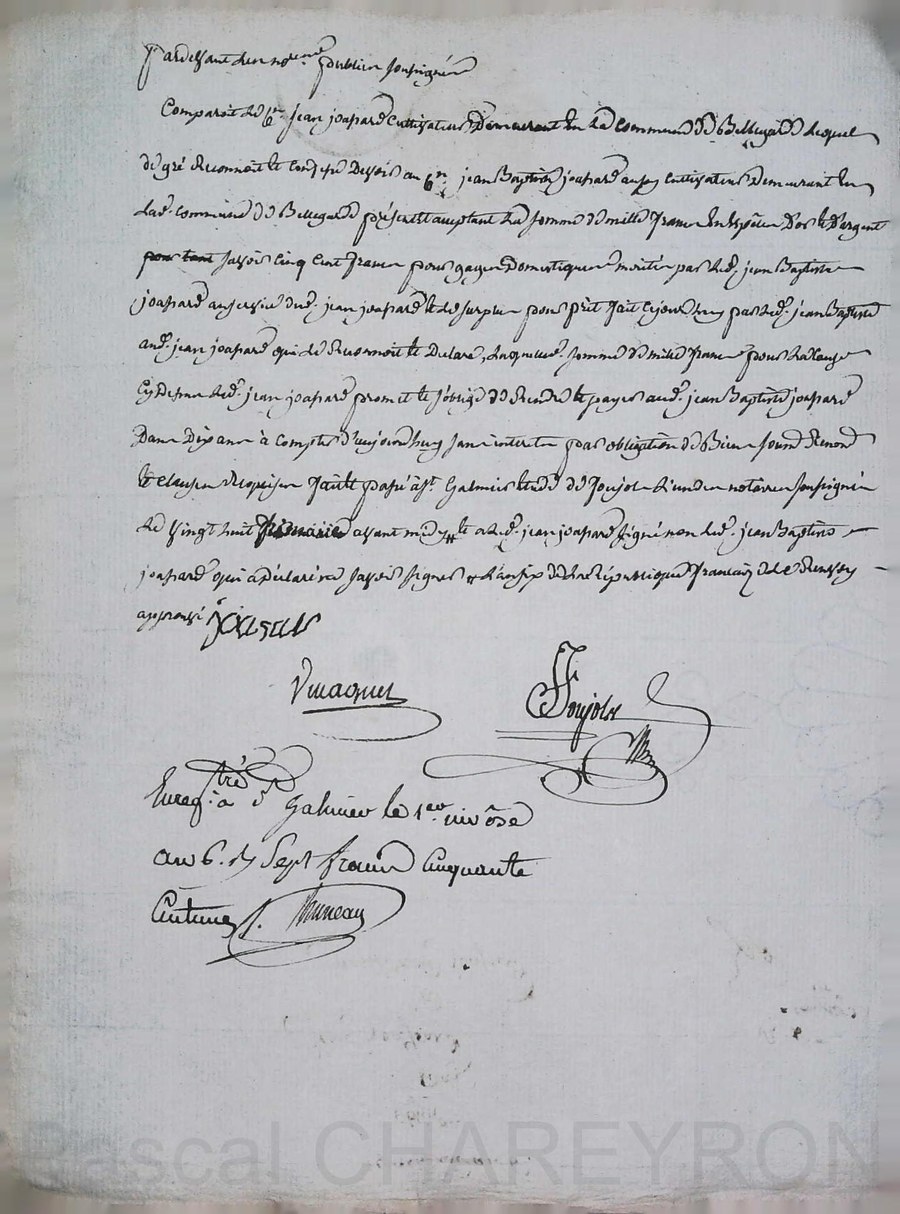 pardevant les no.res publics soussignés
Comparoit le C.en jean joasard cultivateur Demeurant en la commune de Bellegarde lequel
de gré Reconnoit et confesse Devoir au C.en jean Baptiste joasard aussy cultivateur Demeurant en
lad. commune de Bellegarde présent et acceptant la somme de mille francs en Espèces D'or et D'argent
savoir cinq cent francs pour gages Domestiques mérités par led. jean Baptiste
joasard au service dud. jean joasard et le surplus pour prêt fait cejourd'huy par led. jean Baptiste
aud. jean joasard qui le Reconnoit et Declare, laquelle somme de mille francs pour la cause
cy dessus led. jean joasard promet et s'oblige de Rendre et payer aud. jean Baptiste joasard
Dans Dix ans à compter d'aujourd'huy sans interets par obligation de Biens soumis Renon.
et clauses Requises fait et passé à St. Galmier etude de Poujol l'un des notaires soussignés
le vingt huit frimaire avant midy et a led. jean joasard signé non led. jean Baptiste
joasard qui a déclaré ne savoir signer l'an six de la République française le Renvoy
approuvé joasard
Poujol
Enreg.tré à St. Galmier le 1.er nivôse
an 6. Sept francs cinquante
Centimes
Pascal CHAREYRON